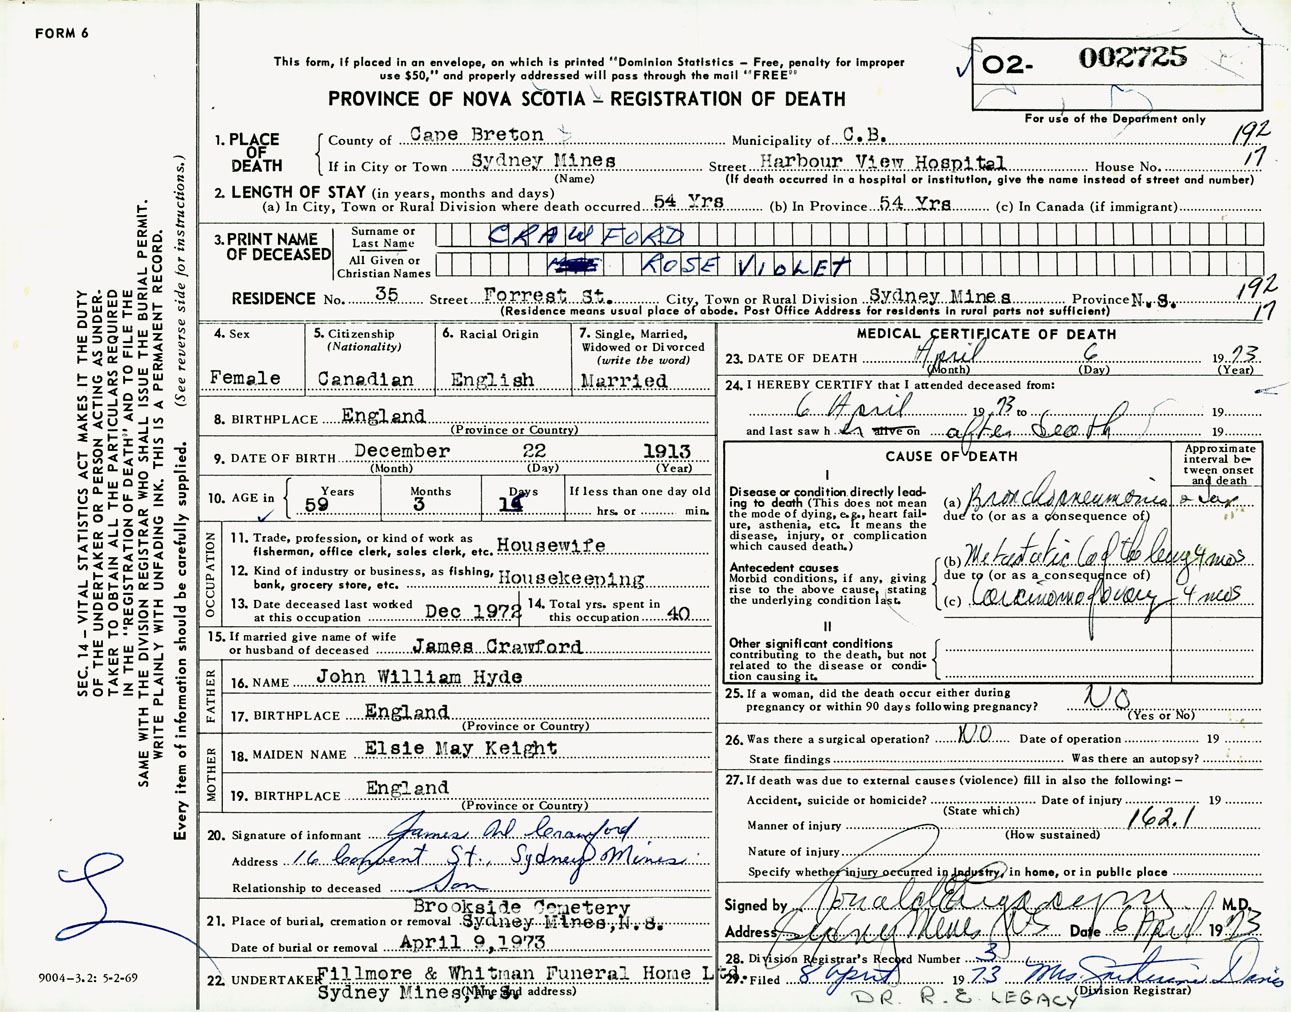 FORM 6
This form, if placed in an envelope, on which is printed "Dominion Statistics – Free, penalty for improper
use $50," and properly addressed will pass through the mail "FREE"
O2- 002725
PROVINCE OF NOVA SCOTIA – REGISTRATION OF DEATH
For use of the Department only
1. PLACE OF DEATH
County of Cape Breton Municipality of C.B. 192
If in City or Town Sydney Mines Street Harbour View Hospital House No. 17
(Name) (If death occurred in a hospital or institution, give the name instead of street and number)
2. LENGTH OF STAY (in years, months and days)
(a) In City, Town or Rural Division where death occurred 54 Yrs (b) In Province 54 Yrs (c) In Canada (if immigrant)
3. PRINT NAME OF DECEASED
Surname or Last Name CRAWFORD
All Given or Christian Names ROSE VIOLET
RESIDENCE No. 35 Street Forrest St. City, Town or Rural Division Sydney Mines Province N.S. 192
(Residence means usual place of abode. Post Office Address for residents in rural parts not sufficient) 17
4. Sex Female
5. Citizenship (Nationality) Canadian
6. Racial Origin English
7. Single, Married, Widowed or Divorced (write the word) Married
8. BIRTHPLACE England
(Province or Country)
9. DATE OF BIRTH December 22 1913
(Month) (Day) (Year)
10. AGE in Years 59 Months 3 Days If less than one day old
hrs. or min.
OCCUPATION
11. Trade, profession, or kind of work as
fisherman, office clerk, sales clerk, etc. Housewife
12. Kind of industry or business, as fishing,
bank, grocery store, etc. Housekeeping
13. Date deceased last worked
at this occupation Dec 1972
14. Total yrs. spent in
this occupation 40
15. If married give name of wife
or husband of deceased James Crawford
FATHER
16. NAME John William Hyde
17. BIRTHPLACE England
(Province or Country)
MOTHER
18. MAIDEN NAME Elsie May Keight
19. BIRTHPLACE England
(Province or Country)
20. Signature of informant James Crawford
Address 16 Convent St., Sydney Mines
Relationship to deceased Son
Brookside Cemetery
21. Place of burial, cremation or removal Sydney Mines, N.S.
Date of burial or removal April 9, 1973
22. UNDERTAKER Fillmore & Whitman Funeral Home Ltd.
Sydney Mines, N.S. (Name and address)
MEDICAL CERTIFICATE OF DEATH
23. DATE OF DEATH April 6 1973
(Month) (Day) (Year)
24. I HEREBY CERTIFY that I attended deceased from:
6 April 1973 to 19
and last saw h er alive on after death 19
CAUSE OF DEATH
Approximate interval between onset and death
I
Disease or condition directly lead-
ing to death (This does not mean
the mode of dying, e.g., heart fail-
ure, asthenia, etc. It means the
disease, injury, or complication
which caused death.)
(a) Bronchopneumonia
due to (or as a consequence of)
Antecedent causes
Morbid conditions, if any, giving
rise to the above cause, stating
the underlying condition last.
(b) Metastatic Ca of the lung 4 mos
due to (or as a consequence of)
(c) Carcinoma of ovary 4 mos
II
Other significant conditions
contributing to the death, but not
related to the disease or condi-
tion causing it.
25. If a woman, did the death occur either during
pregnancy or within 90 days following pregnancy? NO
(Yes or No)
26. Was there a surgical operation? NO Date of operation 19
State findings Was there an autopsy?
27. If death was due to external causes (violence) fill in also the following: –
Accident, suicide or homicide? Date of injury 19
(State which)
Manner of injury 162.1
(How sustained)
Nature of injury
Specify whether injury occurred in industry, in home, or in public place
Signed by M.D.
Address Sydney Mines NS Date 6 April 1973
28. Division Registrar's Record Number 3
29. Filed 8 April 1973 Mrs. Davis
(Division Registrar)
DR. R. E LEGACY
SEC. 14 – VITAL STATISTICS ACT MAKES IT THE DUTY
OF THE UNDERTAKER OR PERSON ACTING AS UNDER-
TAKER TO OBTAIN ALL THE PARTICULARS REQUIRED
IN THE "REGISTRATION OF DEATH" AND TO FILE THE
SAME WITH THE DIVISION REGISTRAR WHO SHALL ISSUE THE BURIAL PERMIT.
WRITE PLAINLY WITH UNFADING INK. THIS IS A PERMANENT RECORD.
Every item of information should be carefully supplied. (See reverse side for instructions.)
9004-3.2: 5-2-69